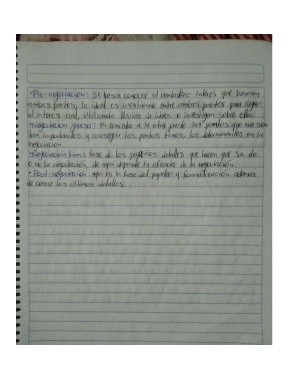 • Pre-negociación: Se busca conocer el verdadero interés que buscan
ambas partes, lo ideal es cuestionar entre ambas partes para llegar
al interés real, utilizando lluvias de ideas e investigar sobre ellos.
• Negociación gruesa: es conceder a la otra parte los puntos que no son
tan importantes y conseguir los puntos finos, los determinantes en la
negociación
• Negociación fina: fase de los pequeños detalles que hacen que se dé
o no la negociación, de aquí depende la eficacia de la negociación.
• Post-negociación: aquí es la fase del y formalización además
de cerrar los últimos detalles.